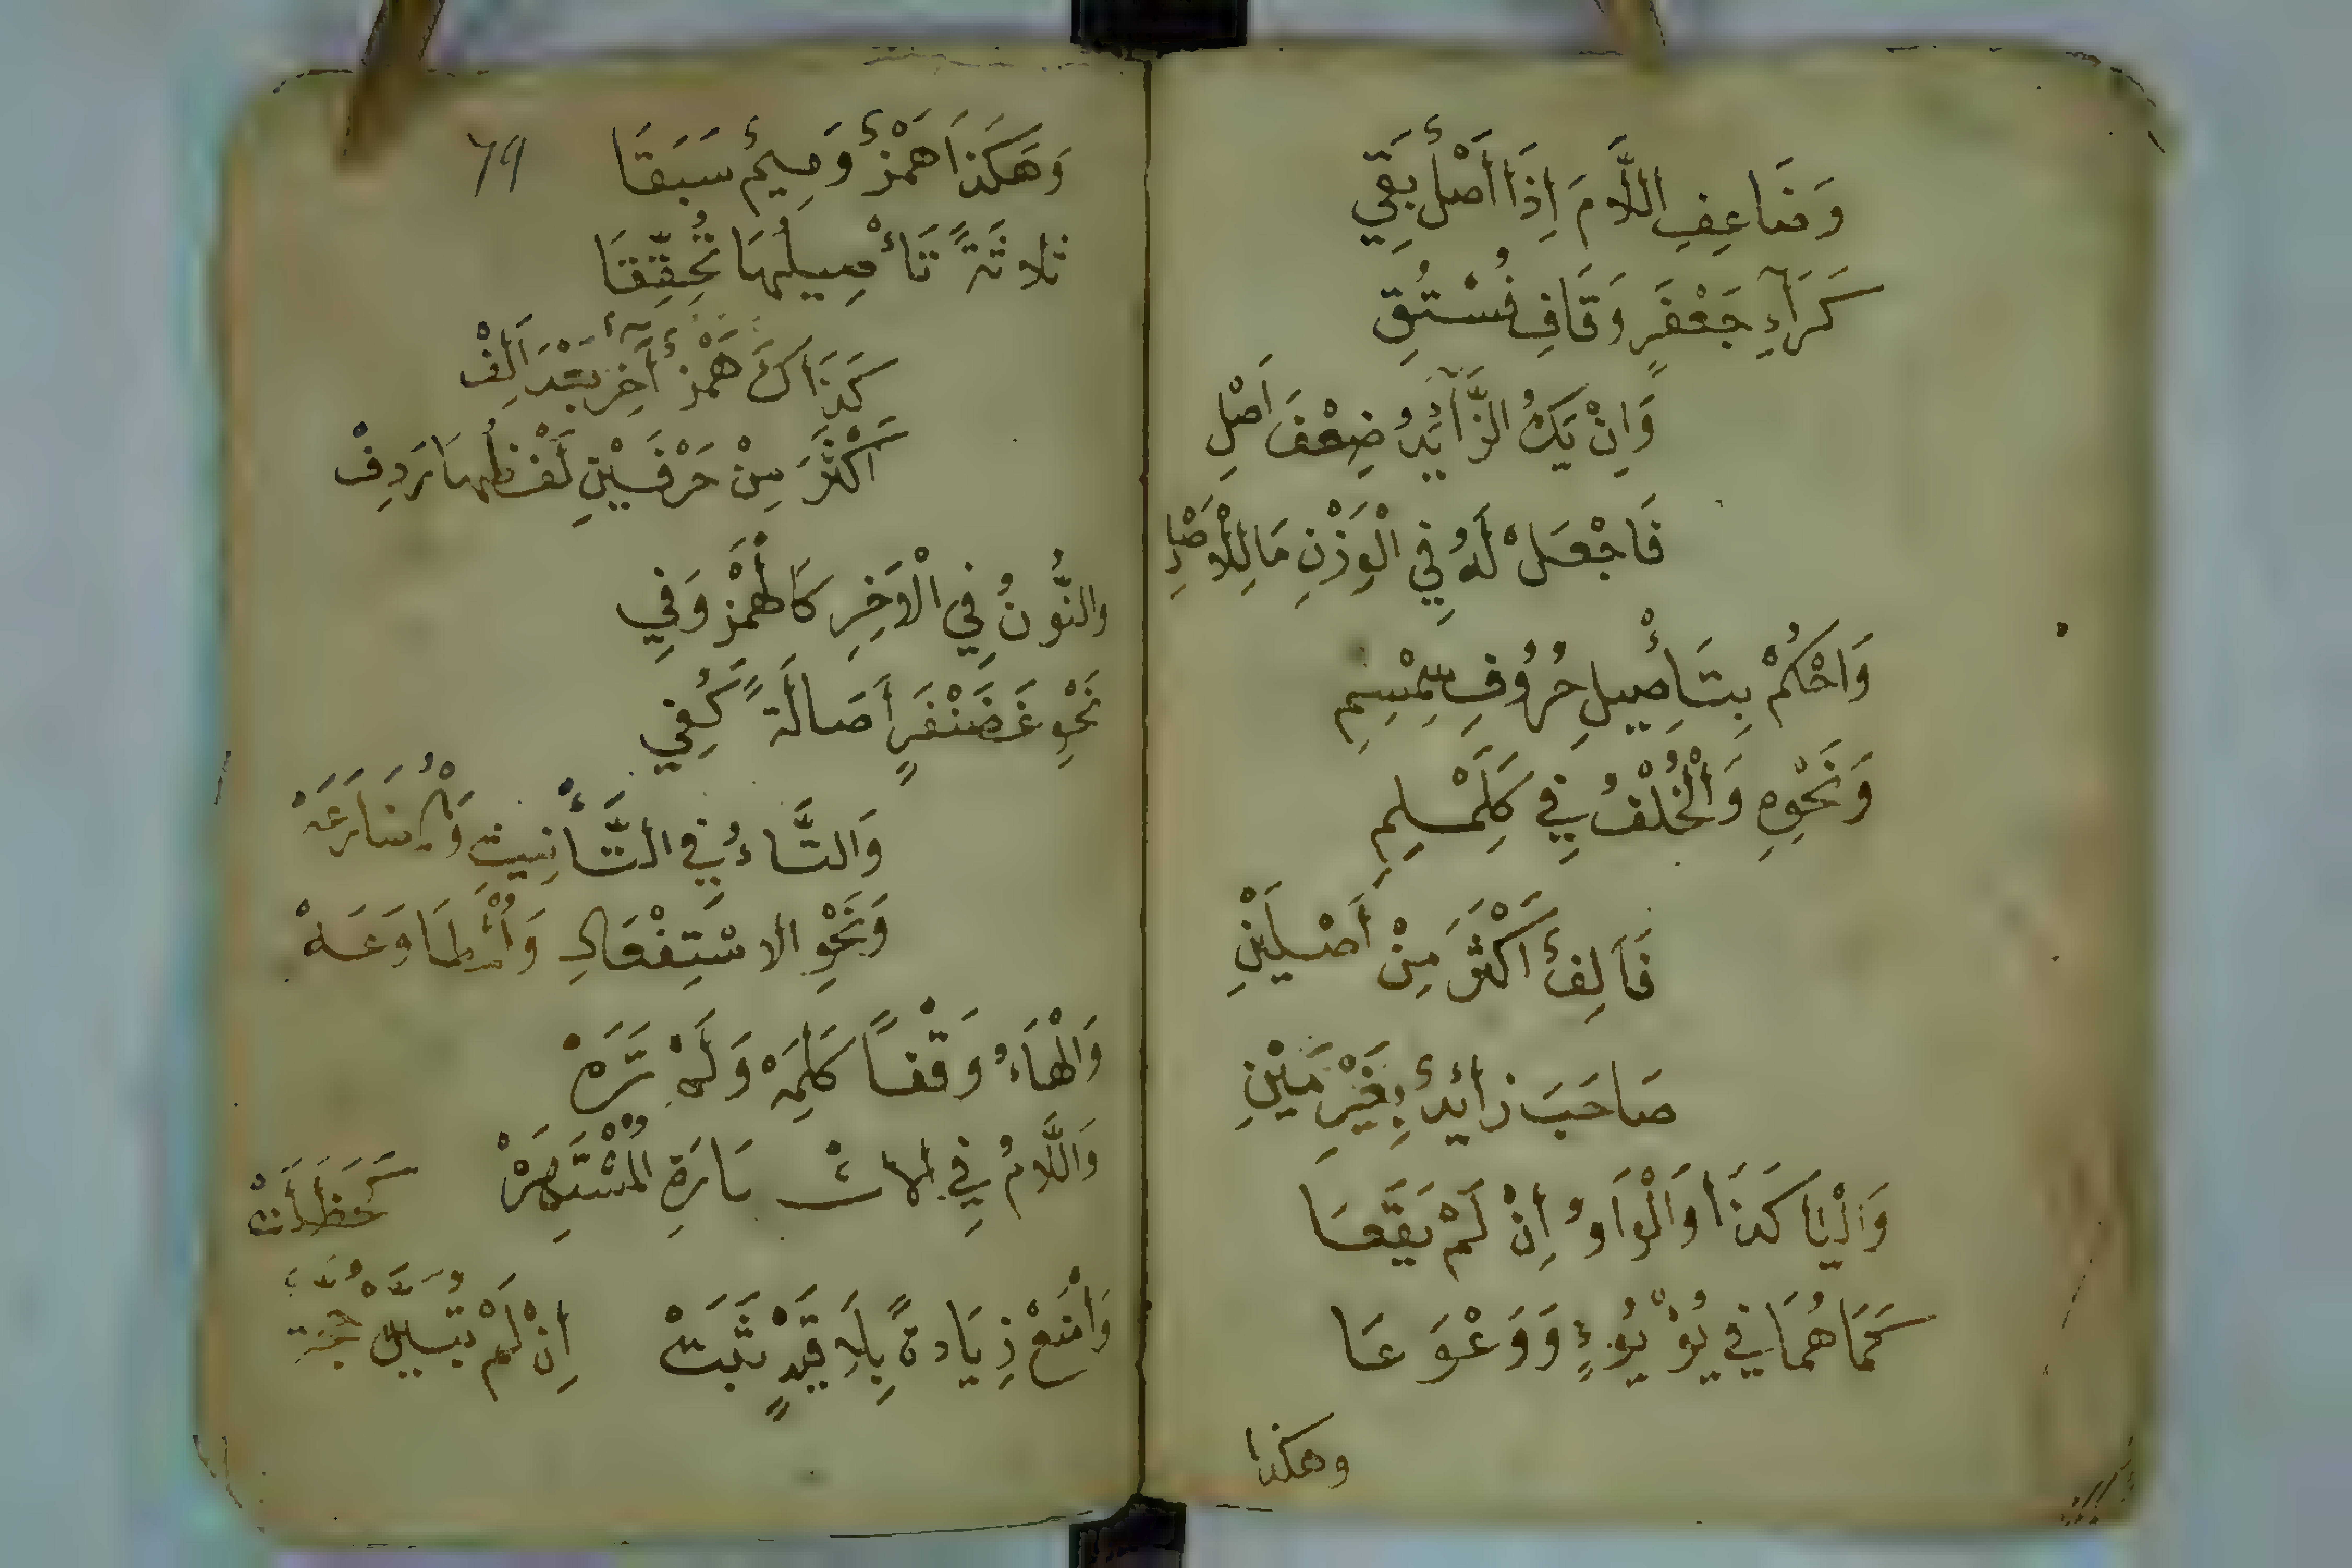 وَضَاعِفِ اللَّامَ اِذَا اَصْلٌ بَقِي
كَرَاءِ جَعْفَرٍ وَقَافِ فُسْتُقِ
وَاِنْ يَكُ الزَّائِدُ ضِعْفَ اَصْلِ
فَاجْعَلْ لَهُ فِي الْوَزْنِ مَا لِلْاَصْلِ
وَاحْكُمْ بِتَأْصِيلِ حُرُوفِ سِمْسِمِ
وَنَحْوِهِ وَالْخُلْفُ فِي كَلَمْلِمِ
فَاَلِفٌ اَكْثَرَ مِنْ اَصْلَيْنِ
صَاحَبَ زَائِدٌ بِغَيْرِ مَيْنِ
وَالْيَا كَذَا وَالْوَاوُ اِنْ لَمْ يَقَعَا
كَمَا هُمَا فِي يُؤْيُؤٍ وَوَعْوَعَا
وهكذا
٦٩
وَهَكَذَا هَمْزٌ وَمِيمٌ سَبَقَا
ثَلَاثَةً تَأْصِيلُهَا تُحُقِّقَا
كَذَاكَ هَمْزٌ آخِرٌ بَعْدَ اَلِفْ
اَكْثَرَ مِنْ حَرْفَيْنِ لَفْظُهَا رَدِفْ
وَالنُّونُ فِي الْآخِرِ كَالْهَمْزِ وَفِي
نَحْوِ غَضَنْفَرٍ اَصَالَةً كُفِي
وَالتَّاءُ فِي التَّأْنِيثِ وَالْمُضَارَعَهْ
وَنَحْوِ الاسْتِفْعَالِ وَالْمُطَاوَعَهْ
وَالْهَاءُ وَقْفاً كَلِمَهْ وَلَمْ تَرَهْ
وَاللَّامُ فِي الاشْارَةِ الْمُشْتَهِرَهْ
وَامْنَعْ زِيَادَةً بِلَا قَيْدٍ ثَبَتْ
اِنْ لَمْ تُبَيَّنْ حُجَّةٌ
كَحَظَلَتْ